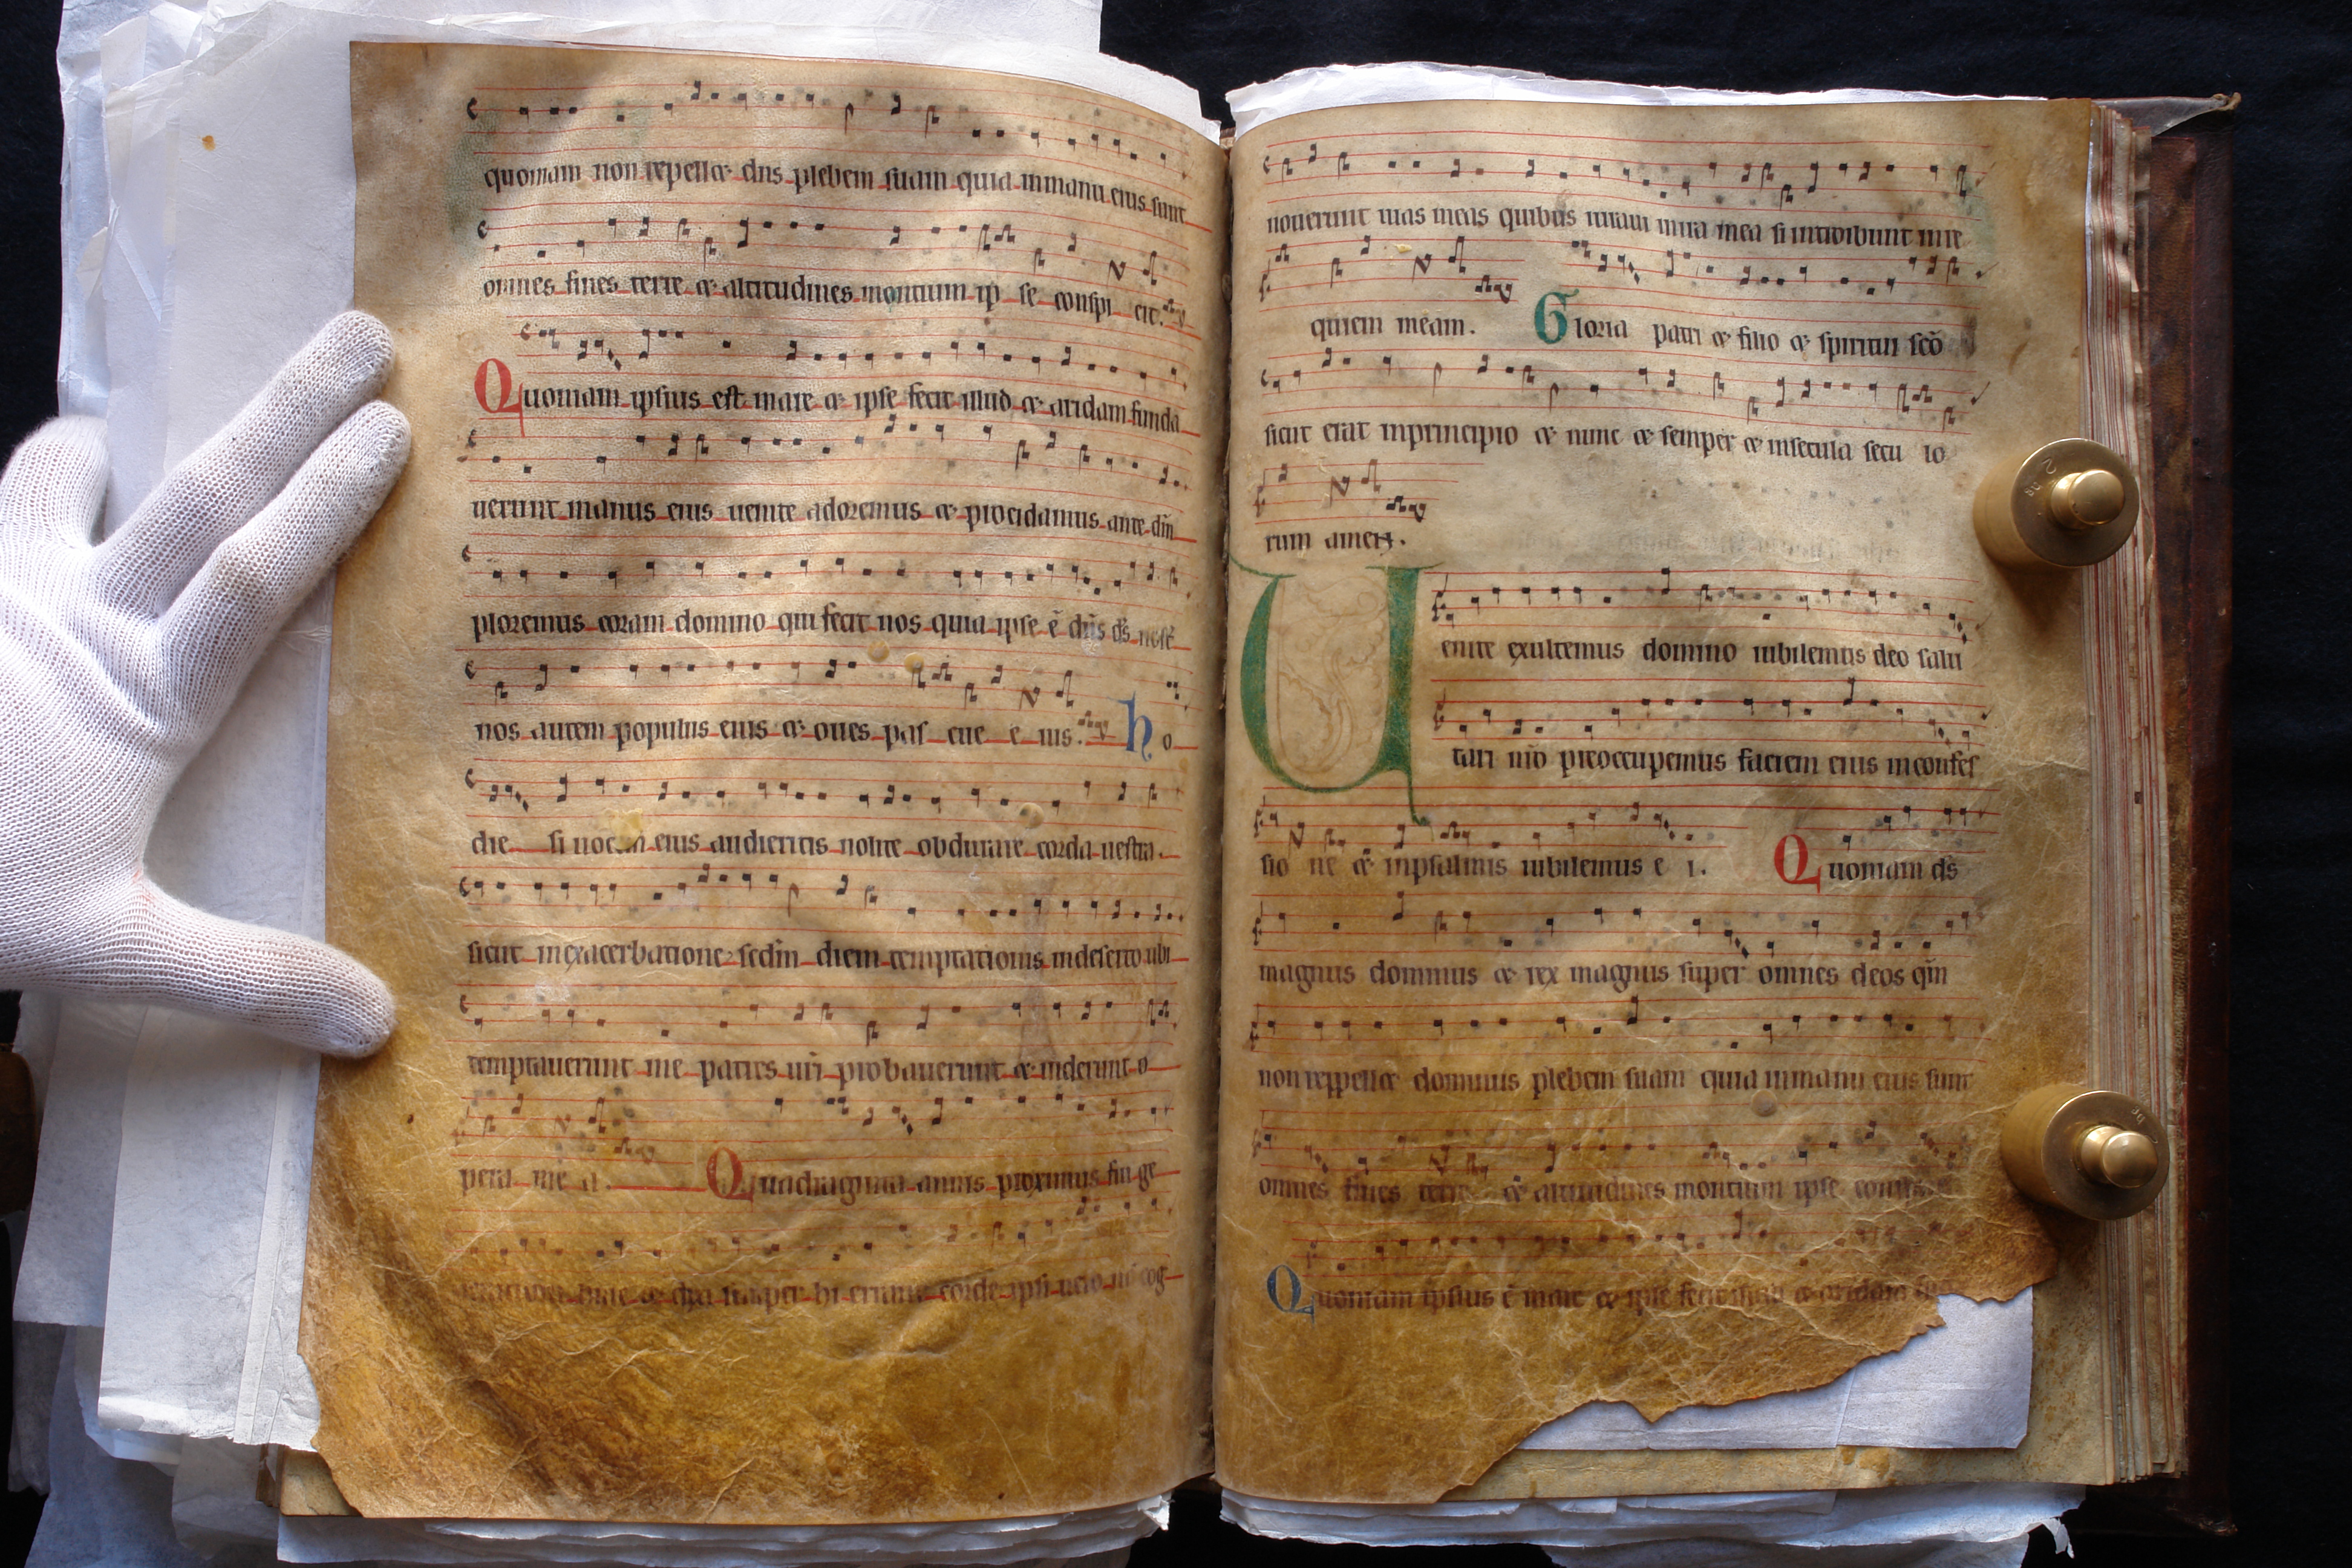 quoniam non repellet dns plebem suam quia inmanu eius sunt
omnes fines terre et altitudines montium ip se conspi cit.
Quoniam ipsius est mare et ipse fecit illud et aridam funda
uerunt manus eius uenite adoremus et procidamus ante dm̄
ploremus coram domino qui fecit nos quia ipse ē dn̄s ds̄
nos autem populus eius et oues pas cue e ius. ho
die si uocem eius audieritis nolite obdurare corda uestra.
sicut inexacerbatione sedm̄ diem temptationis indeserto ubi
temptauerunt me patres ur̄i probauerunt et uiderunt o
pera me a. Quadraginta annis proximus fui ge
hi errant corde ipsi uero cog
nouerunt uias meas quibus iuraui inira mea si introibunt inre
quiem meam. Gloria patri et filio et spiritui scō
sicut erat inprincipio et nunc et semper et insecula secu lo
rum amen.
Uenite exultemus domino iubilemus deo salu
tari nr̄o preoccupemus faciem eius inconfes
sio ne et inpsalmis iubilemus e i. Quoniam ds̄
magnus dominus et rex magnus super omnes deos qm̄
non reppellet dominus plebem suam quia inmanu eius sunt
omnes fines terre et altitudines montium ipse
Quoniam ipsius ē mare et ipse fecit illud et aridam